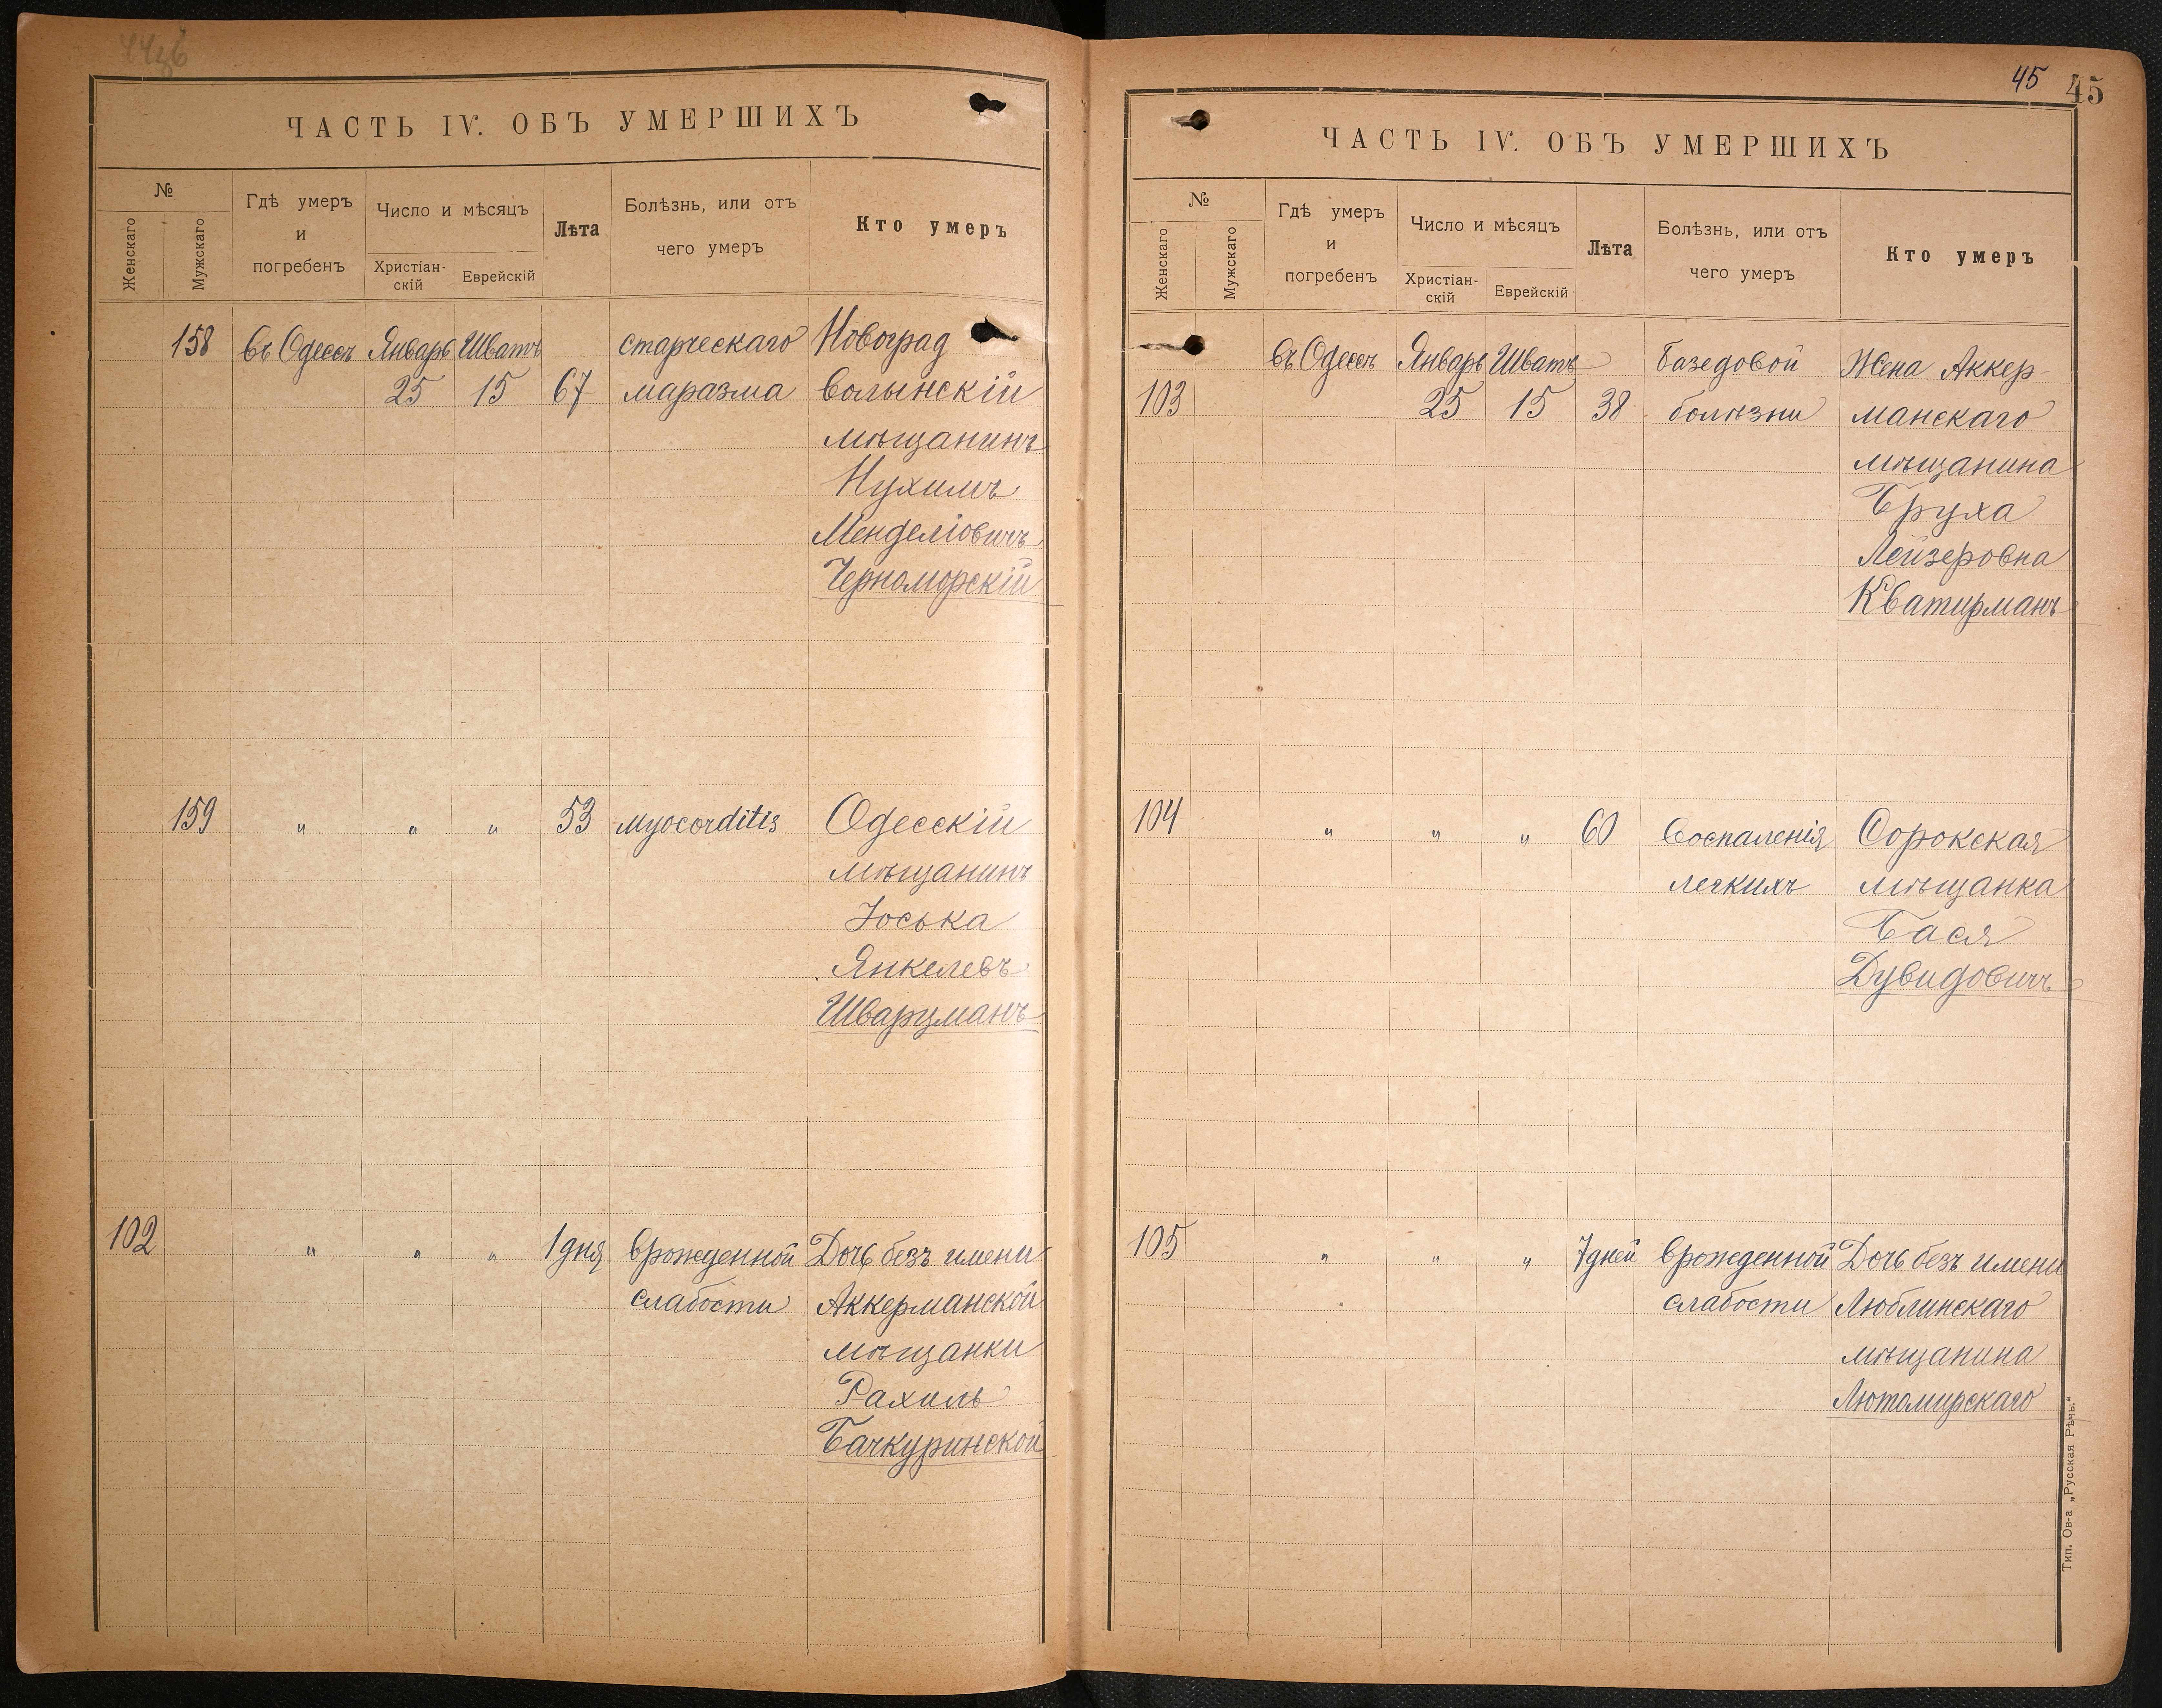 ЧАСТЬ IV. ОБЪ УМЕРШИХЪ
№
Женскаго
Мужскаго
Гдѣ умеръ
и
погребенъ
Число и мѣсяцъ
Христіан-
скій
Еврейскій
Лѣта
Болѣзнь, или отъ
чего умеръ
Кто умеръ
158 въ Одессѣ Январь Шватъ старческаго Новоград
25 15 67 маразма волынскій
мѣщанинъ
Нухимъ
Менделіовичъ
Черноморскій
159 " " " 53 myocorditis Одесскій
мѣщанинъ
Іоська
Янкелевъ
Шварцманъ
102 " " " 1 дня врожденной Дочь безъ имени
слабости Аккерманской
мѣщанки
Рахиль
Бачкуринской
45 45
ЧАСТЬ IV. ОБЪ УМЕРШИХЪ
№
Женскаго
Мужскаго
Гдѣ умеръ
и
погребенъ
Число и мѣсяцъ
Христіан-
скій
Еврейскій
Лѣта
Болѣзнь, или отъ
чего умеръ
Кто умеръ
въ Одессѣ Январь Шватъ базедовой Жена Аккер-
103 25 15 38 болѣзни манскаго
мѣщанина
Бруха
Лейзеровна
Кватирманъ
104 " " " 60 Воспаленія Сорокская
легкихъ мѣщанка
Бася
Дувидовичъ
105 " " " 7 дней врожденной Дочь безъ имени
слабости Люблинскаго
мѣщанина
Лютомирскаго
Тип. Ов-а „Русская Рѣчь."